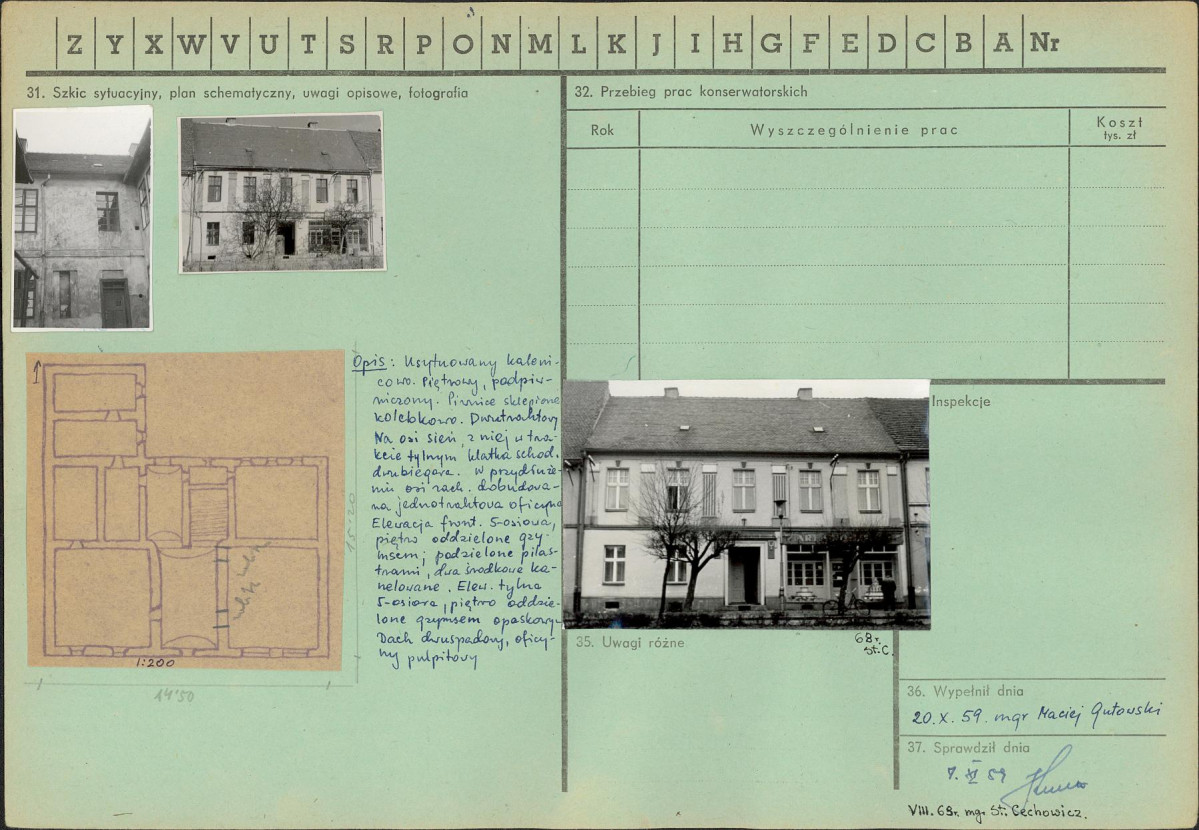 Z Y X W V U T S R P O N M L K J I H G F E D C B A Nr
31. Szkic sytuacyjny, plan schematyczny, uwagi opisowe, fotografia
Opis: Usytuowany kaleni-
cowo. Piętrowy, podpiw-
niczony. Piwnice sklepione
kolebkowo. Dwutraktowy
Na osi sień, z niej w tra-
kcie tylnym klatka schod.
dwubiegowa. W przydłuże-
niu osi zach. dobudowa-
na jednotraktowa oficyna
Elewacja front. 5-osiowa,
piętro oddzielone gzy-
msem; podzielone pilas-
trami, dwa środkowe ka-
nelowane. Elew. tylna
5-osiowa, piętro oddzie-
lone gzymsem opaskowym
Dach dwuspadowy, oficy-
ny pulpitowy
15-20
1:200
14'50
32. Przebieg prac konserwatorskich
Rok
Wyszczególnienie prac
Koszt
tys. zł
Inspekcje
68r.
St.C.
35. Uwagi różne
36. Wypełnił dnia
20.X.59. mgr Maciej Gutowski
37. Sprawdził dnia
7. XI 59
VIII. 68r. mgr St. Cechowicz.